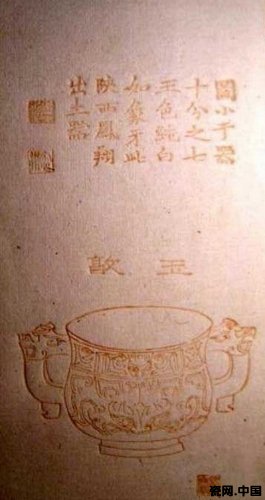 圖小于器
十分之七
玉色純白
如象牙此
陝西鳳翔
出土器
玉敦
瓷网.中国